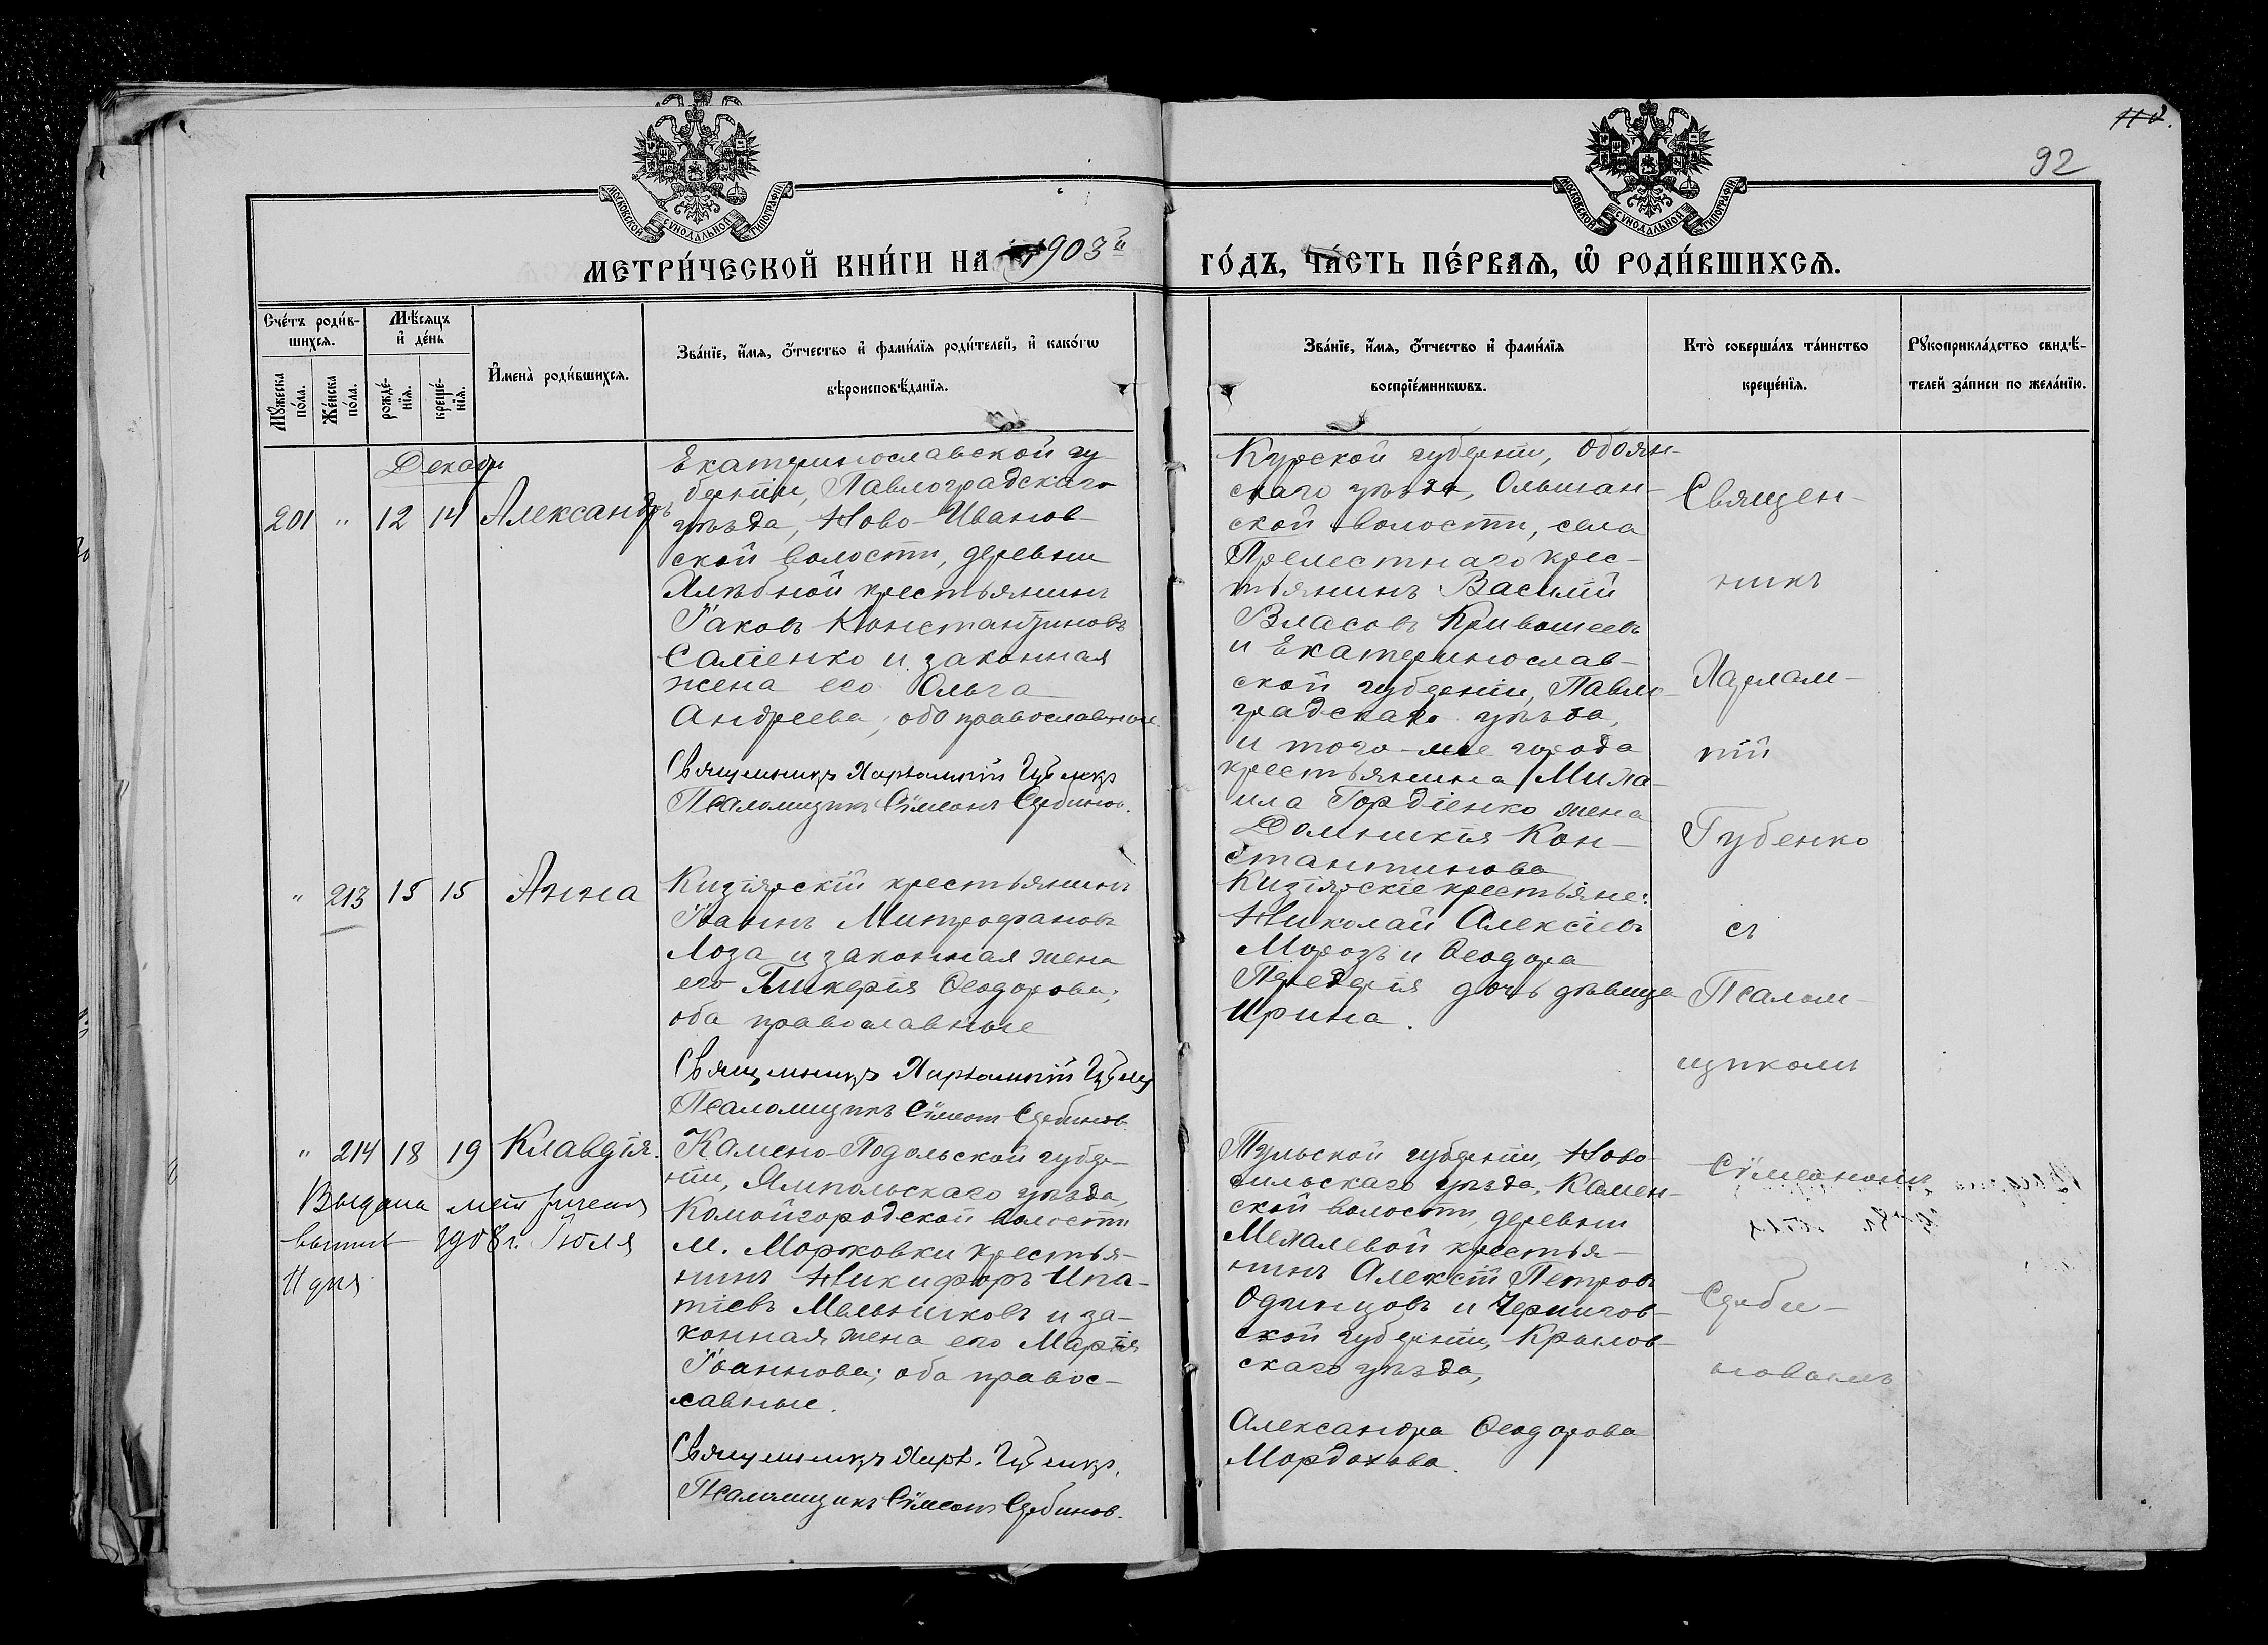 118.
92
МОСКОВСКОЙ СУНОДАЛЬНОЙ ТИПОГРАФІИ
МОСКОВСКОЙ СУНОДАЛЬНОЙ ТИПОГРАФІИ
МЕТРИ́ЧЕСКОЙ КНИ́ГИ НА 1903й
ГО́ДЪ, ЧА́СТЬ ПЕ́РВАѦ, Ѡ҆ РОДИ́ВШИХСѦ.
Сче́тъ роди́в-
шихсѧ.
Мꙋ́жеска
по́ла.
Же́нска
по́ла.
Мѣ́сѧцъ
и҆ де́нь
рожде́-
нїѧ.
креще́-
нїѧ.
И҆мена̀ роди́вшихсѧ.
Зва́нїе, и҆́мѧ, ѻ҆́тчество и҆ фами́лїѧ роди́телей, и҆ како́гѡ
вѣроисповѣ́данїѧ.
Зва́нїе, и҆́мѧ, ѻ҆́тчество и҆ фами́лїѧ
воспрїе́мникѡвъ.
Кто̀ соверша́лъ та́инство
креще́нїѧ.
Рꙋкоприкла́дство свидѣ́-
телей за́писи по жела́нїю.
Декабрь
201 " 12 14 Александръ
Екатеринославской гу-
берніи, Павлоградскаго
уѣзда, Ново-Иванов-
ской волости, деревни
Хлѣбной крестьянинъ
Іаковъ Константиновъ
Саліенко и законная
жена его Ольга
Андреева, оба православные.
Священникъ Харлампій Губенко
Псаломщикъ Сѵмеонъ Сербиновъ.
Курской губерніи, Обоян-
скаго уѣзда, Ольшан-
ской волости, села
Прелестнаго крес-
тьянинъ Василій
Власовъ Кривошеевъ
и Екатеринослав-
ской губерніи, Павло-
градскаго уѣзда,
и того-же города
крестьянина Миха-
ила Гордіенко жена
Домникія Кон-
стантинова
Священ-
никъ
Харлам-
пій
Губенко
съ
Псалом-
щикомъ
Сѵмеономъ
Серби-
новымъ
" 213 15 15 Анна
Кизіярскій крестьянинъ
Іоаннъ Митрофановъ
Лоза и законная жена
его Гликерія Ѳеодорова;
оба православные
Священникъ Харлампій Губенко
Псаломщикъ Сѵмеонъ Сербиновъ
Кизіярскіе крестьяне:
Николай Алексіевъ
Морозъ и Ѳеодора
Передерія дочь дѣвица
Ирина.
" 214 18 19 Клавдія.
Выдана метрическая
выпись 1908 г. Іюля
11 дня
Камено-Подольской губер-
ніи, Ямпольскаго уѣзда,
Комойгородской волости
м. Моржовки крестья-
нинъ Никифоръ Ипа-
тіевъ Мельниковъ и за-
конная жена его Марія
Іоаннова; оба правос-
лавные.
Священникъ Харл. Губенко,
Псаломщикъ Сѵмеонъ Сербиновъ.
Тульской губерніи, Ново-
сильскаго уѣзда, Камен-
ской волости, деревни
Михалевой крестья-
нинъ Алексій Петровъ
Одинцовъ и Чернигов-
ской губерніи, Кролев-
скаго уѣзда,
Александра Ѳеодорова
Мордахова.